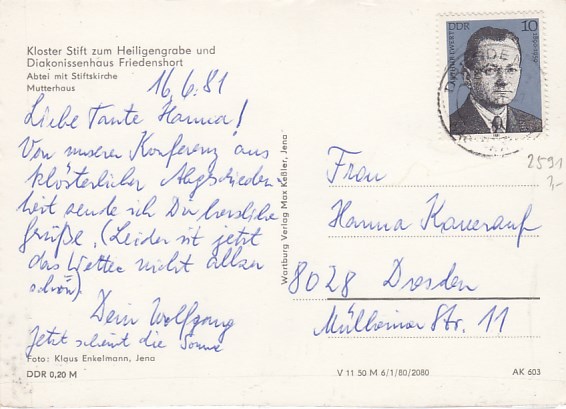 Kloster Stift zum Heiligengrabe und
Diakonissenhaus Friedenshort
Abtei mit Stiftskirche
Mutterhaus
16.6.81
Liebe Tante Hanna!
Von unserer Konferenz aus
klösterlicher Abgeschieden-
heit sende ich Dir herzliche
Grüße. (Leider ist jetzt
das Wetter nicht allzu
schön).
Dein Wolfgang
Jetzt scheint die Sonne
Foto: Klaus Enkelmann, Jena
DDR 0,20 M
Wartburg Verlag Max Keßler, Jena
DDR 10
2591
Frau
Hanna Kauerauf
8028 Dresden
Mülheimer Str. 11
V 11 50 M 6/1/80/2080
AK 603